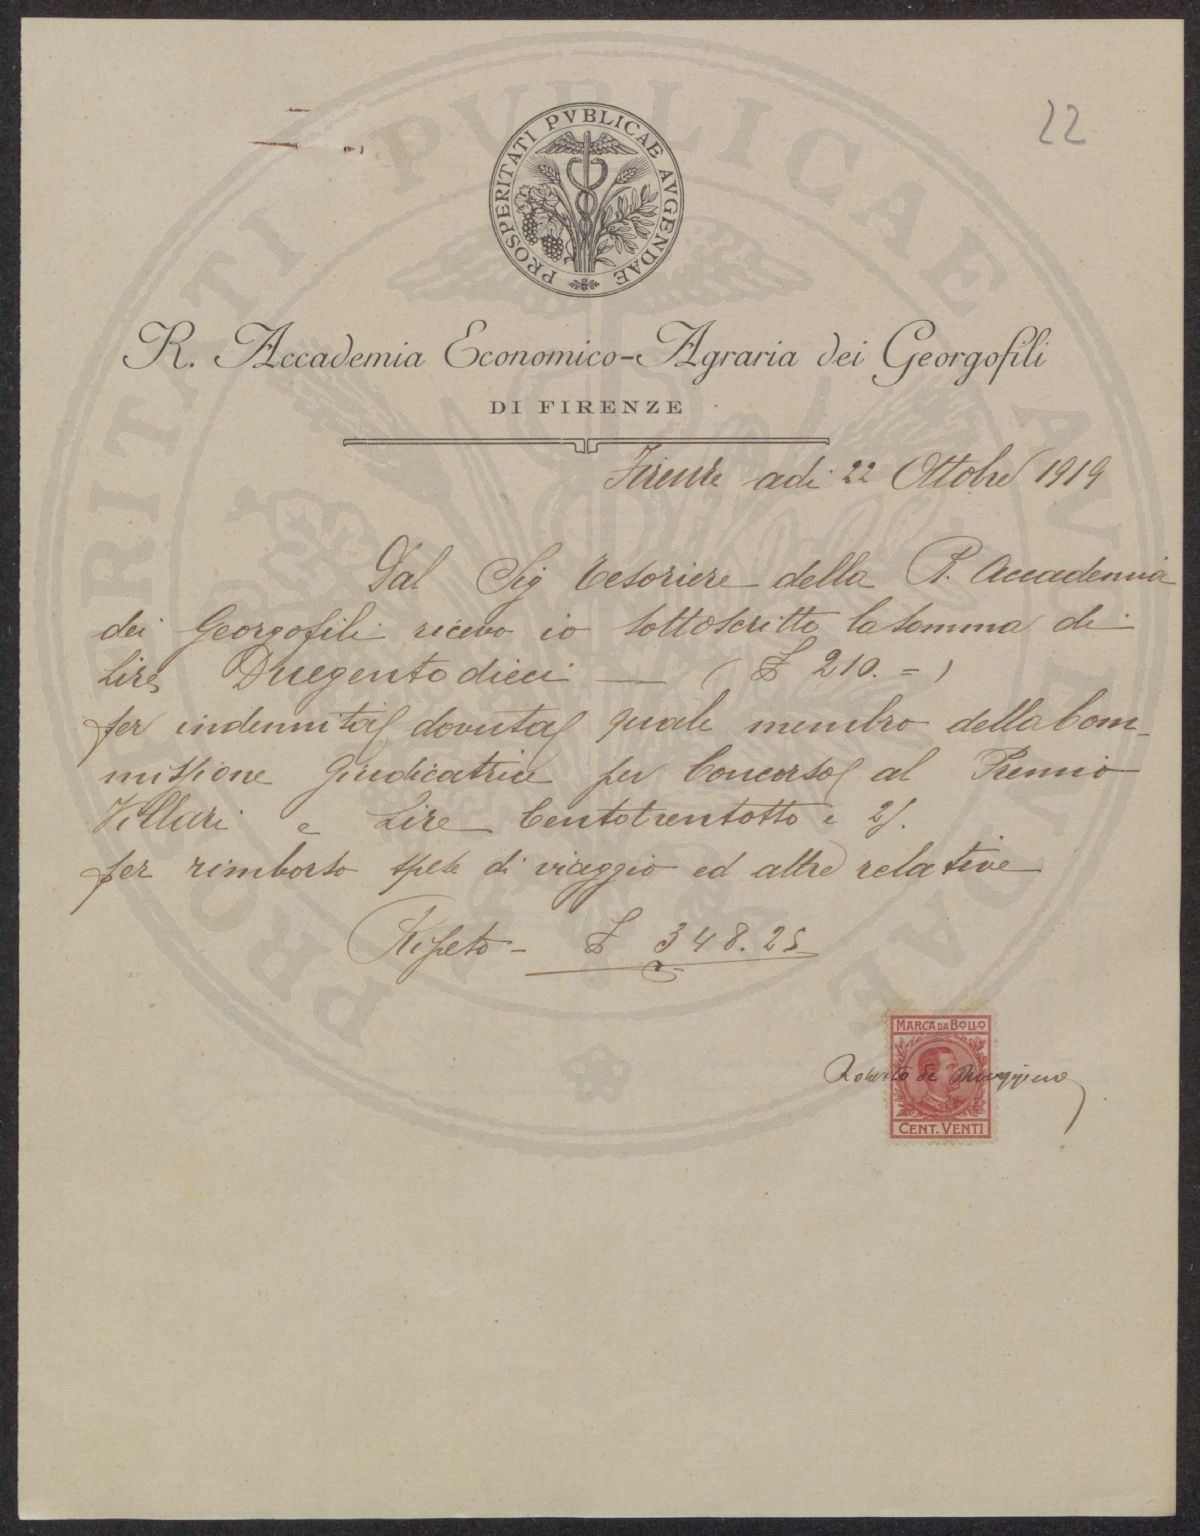 22
PROSPERITATI PVBLICAE AVGENDAE
R. Accademia Economico-Agraria dei Georgofili
DI FIRENZE
Firenze adì 22 Ottobre 1919
Dal Sig Tesoriere della R. Accademia
dei Georgofili ricevo io sottoscritto la somma di
Lire Duegentodieci — (£ 210. = )
per indennità dovuta quale membro della Com-
missione Giudicatrice per Concorso al Premio
Villari e Lire Centotrentotto e 25.
per rimborso spese di viaggio ed altre relative
Ripeto - £ 348.25
MARCA DA BOLLO
Roberto de Ruggiero
CENT. VENTI